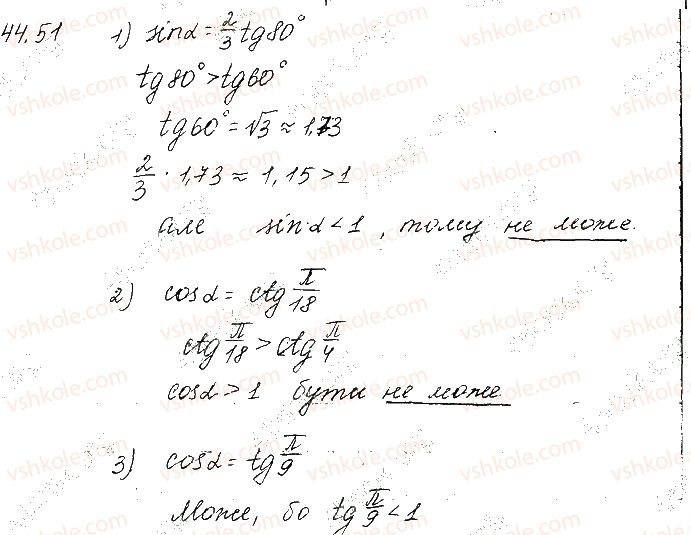 44.51 1) sinα = 2/3 tg80°
tg80° > tg60°
tg60° = √3 ≈ 1,73
2/3 · 1,73 ≈ 1,15 > 1
але sinα < 1, тому не може.
2) cosα = ctg π/18
ctg π/18 > ctg π/4
cosα > 1 бути не може.
3) cosα = tg π/9
Може, бо tg π/9 < 1